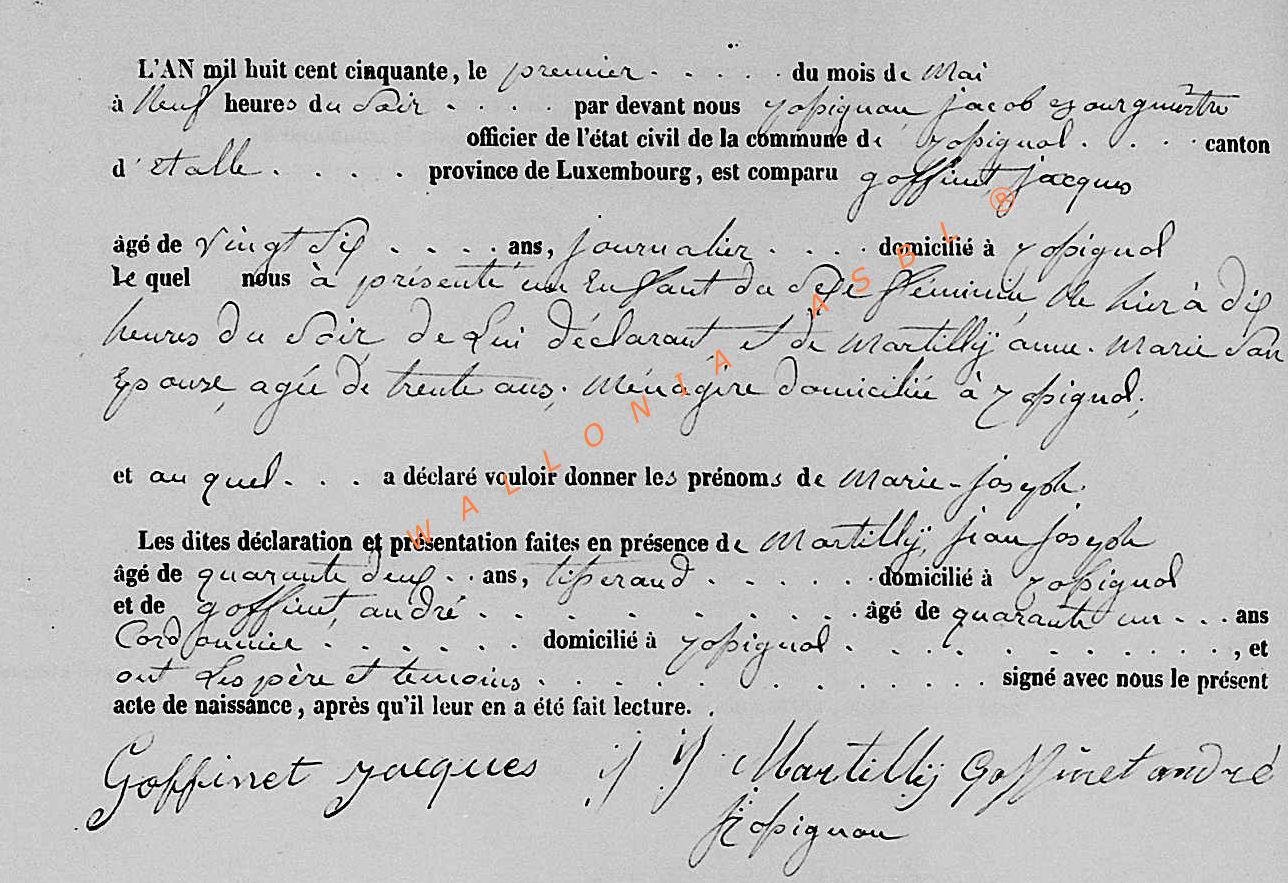 L'AN mil huit cent cinquante, le premier . . . . du mois de Mai
à Neuf heures du Soir . . . . par devant nous rossignon jacob Bourguimestre
officier de l'état civil de la commune de rossignol . . . . canton
d'Etalle . . . . province de Luxembourg, est comparu goffinet jacques
âgé de vingt Six . . . . ans, journalier . . . . domicilié à rossignol
le quel nous à présenté un Enfant du Sexe féminin, Né hier à dix
heures du Soir de Lui déclarant, et de Martilly anne-Marie Son
Epouse, agée de trente ans, Ménagère domiciliée à rossignol,
et au quel . . . a déclaré vouloir donner les prénoms de Marie-Joseph.
Les dites déclaration et présentation faites en présence de Martilly, jean joseph
âgé de quarante deux . . ans, tisserand . . . . . . domicilié à rossignol
et de goffinet, andré . . . . . . . . . âgé de quarante un . . . ans
Cordonnier . . . . . . domicilié à rossignol . . . . . . . . . . . , et
ont Les père et temoins . . . . . . . . . . . signé avec nous le présent
acte de naissance, après qu'il leur en a été fait lecture.
Goffinet jacques j j Martilly Goffinet andré
rossignon
WALLONIA ASBL ®